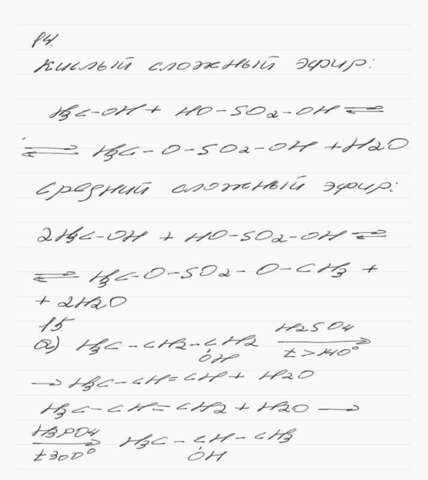 №4.
Кислый сложный эфир:
H3C-OH + HO-SO2-OH ⇌
⇌ H3C-O-SO2-OH + H2O
Средний сложный эфир:
2H3C-OH + HO-SO2-OH ⇌
⇌ H3C-O-SO2-O-CH3 +
+ 2H2O
№5
а) H3C-CH2-CH2 H2SO4
OH t>140°
→ H3C-CH=CH + H2O
H3C-CH=CH2 + H2O →
H3PO4 H3C-CH-CH3
t300° OH